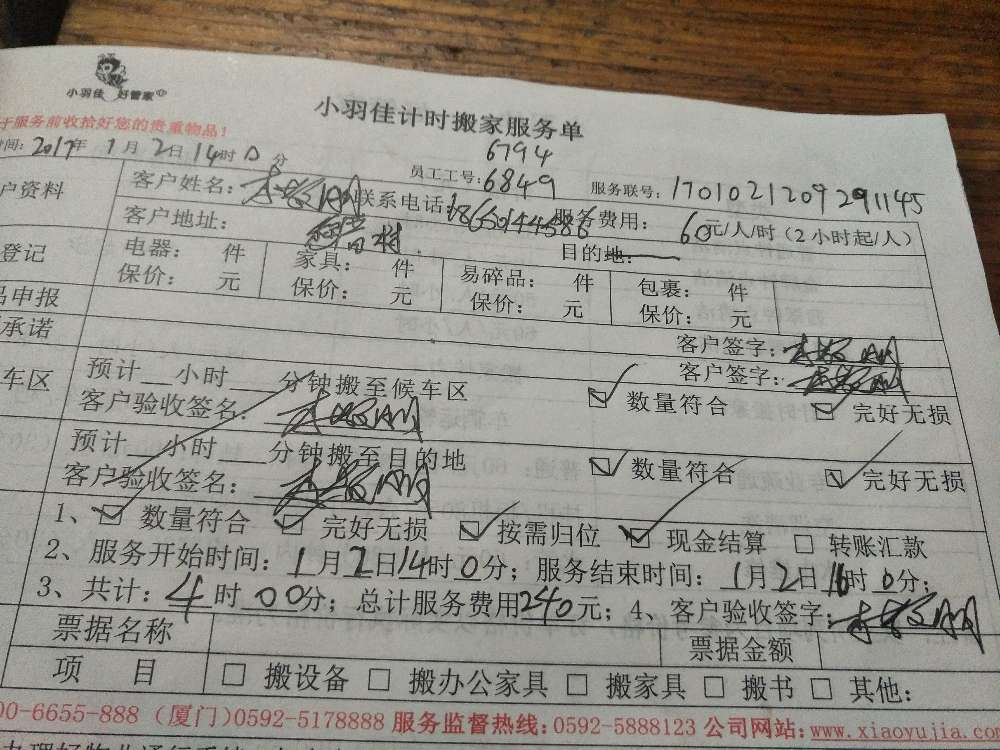 小羽佳 好管家
小羽佳计时搬家服务单
于服务前收拾好您的贵重物品!
时间: 2017年 1月 2日 14时 0分
6794
员工工号: 6849 服务联号: 1701021209291145
户资料 客户姓名: 联系电话: 18650144586 服务费用: 60元/人/时(2小时起/人)
客户地址: 村 目的地:
登记 电器: 件 家具: 件 易碎品: 件 包裹: 件
保价: 元 保价: 元 保价: 元 保价: 元
品申报 客户签字:
承诺 客户签字:
车区 预计__小时___分钟搬至候车区 数量符合 完好无损
客户验收签名:
预计__小时___分钟搬至目的地 数量符合 完好无损
客户验收签名:
1、 数量符合 完好无损 按需归位 现金结算 转账汇款
2、服务开始时间: 1月2日14时0分; 服务结束时间: 1月2日16时0分;
3、共计: 4时00分; 总计服务费用240元; 4、客户验收签字:
票据名称 票据金额
项 目 搬设备 搬办公家具 搬家具 搬书 其他:
00-6655-888 (厦门)0592-5178888 服务监督热线: 0592-5888123 公司网站: www.xiaoyujia.co